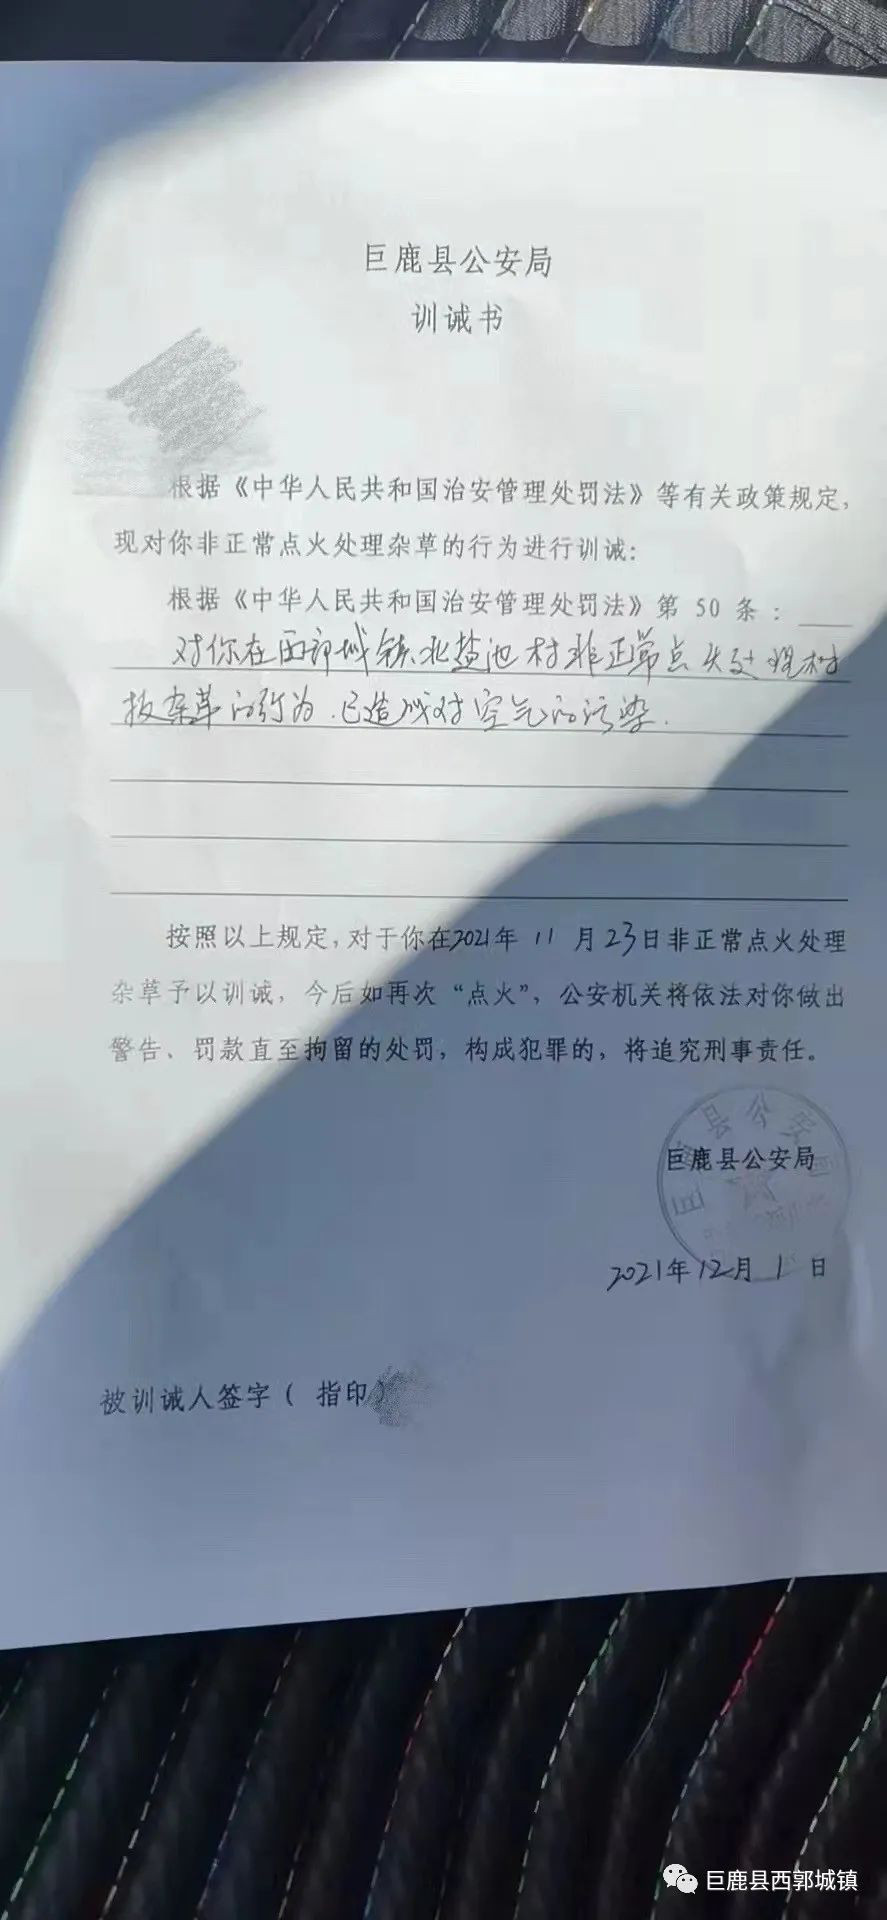 巨鹿县公安局
训诫书
根据《中华人民共和国治安管理处罚法》等有关政策规定,
现对你非正常点火处理杂草的行为进行训诫:
根据《中华人民共和国治安管理处罚法》第 50 条:
对你在西郭城镇北盐池村非正常点火处理树
枝杂草的行为.已造成对空气的污染.
按照以上规定,对于你在2021年 11 月23日非正常点火处理
杂草予以训诫,今后如再次“点火”,公安机关将依法对你做出
警告、罚款直至拘留的处罚,构成犯罪的,将追究刑事责任。
巨鹿县公安局
巨鹿县公安局
2021年12月 1 日
被训诫人签字( 指印)
巨鹿县西郭城镇